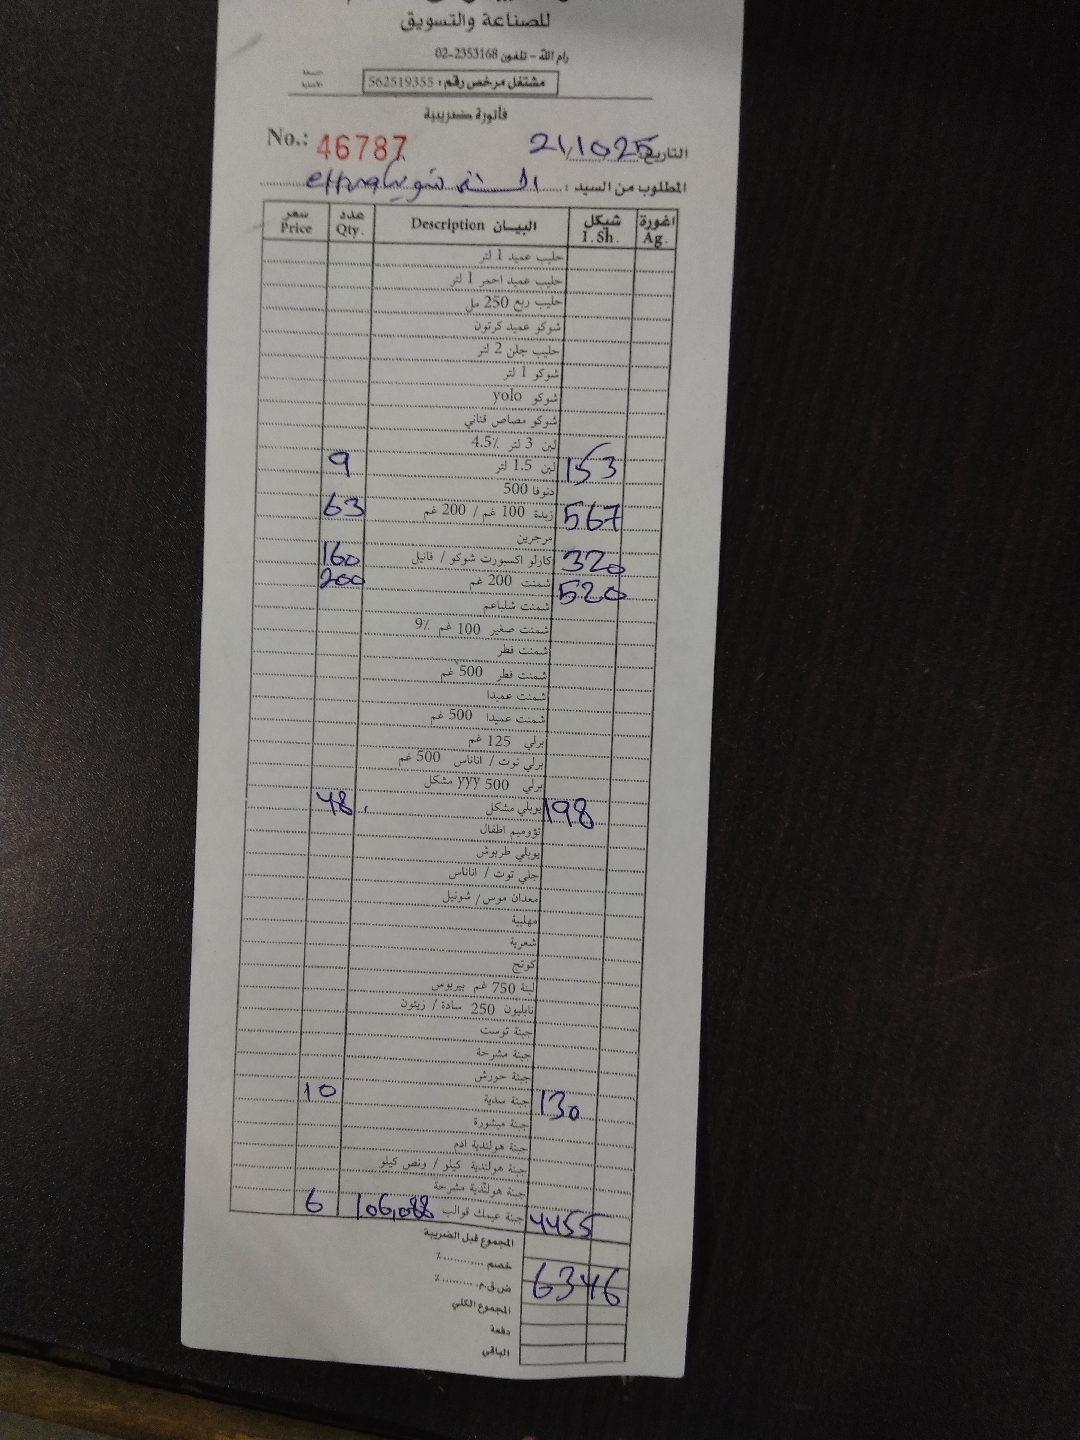 للصناعة والتسويق
رام الله - تلفون 02-2353168
مشتغل مرخص رقم: 562519355
فاتورة ضريبية
No.: 46787 التاريخ 21/10 25
المطلوب من السيد :
سعر عدد البيـان Description شيكل اغورة
Price Qty. I.Sh. Ag.
حليب عميد 1 لتر
حليب عميد احمر 1 لتر
حليب ربع 250 مل
شوكو عميد كرتون
حليب جلن 2 لتر
شوكو 1 لتر
شوكو yolo
شوكو مصاص قناني
لبن 3 لتر 4.5%
9 لبن 1.5 لتر 153
دنوفا 500
63 زبدة 100 غم / 200 غم 567
مرجرين
160 كارلو اكسبورت شوكو / فانيل 320
200 شمنت 200 غم 520
شمنت شلباعم
شمنت صغير 100 غم 9%
شمنت فطر
شمنت فطر 500 غم
شمنت عميدا
شمنت عميدا 500 غم
برلي 125 غم
برلي توت / اناناس 500 غم
برلي 500 yyy مشكل
48 يوبلي مشكل 198
تؤوميم اطفال
يوبلي طربوش
جلي توت / اناناس
معدان موس / شونيل
مهلبية
شعرية
كوتج
لبنة 750 غم بيربوس
نابليون 250 سادة / زيتون
جبنة توست
جبنة مشرحة
جبنة حورش
10 جبنة سدية 130
جبنة مبشورة
جبنة هولندية ادم
جبنة هولندية كيلو / ونص كيلو
جبنة هولندية مشرحة
6 106,088 جبنة عيمك قوالب 4455
المجموع قبل الضريبة
خصم ........... ٪ 6346
ض.ق.م. ......... ٪
المجموع الكلي
دفعة
الباقي